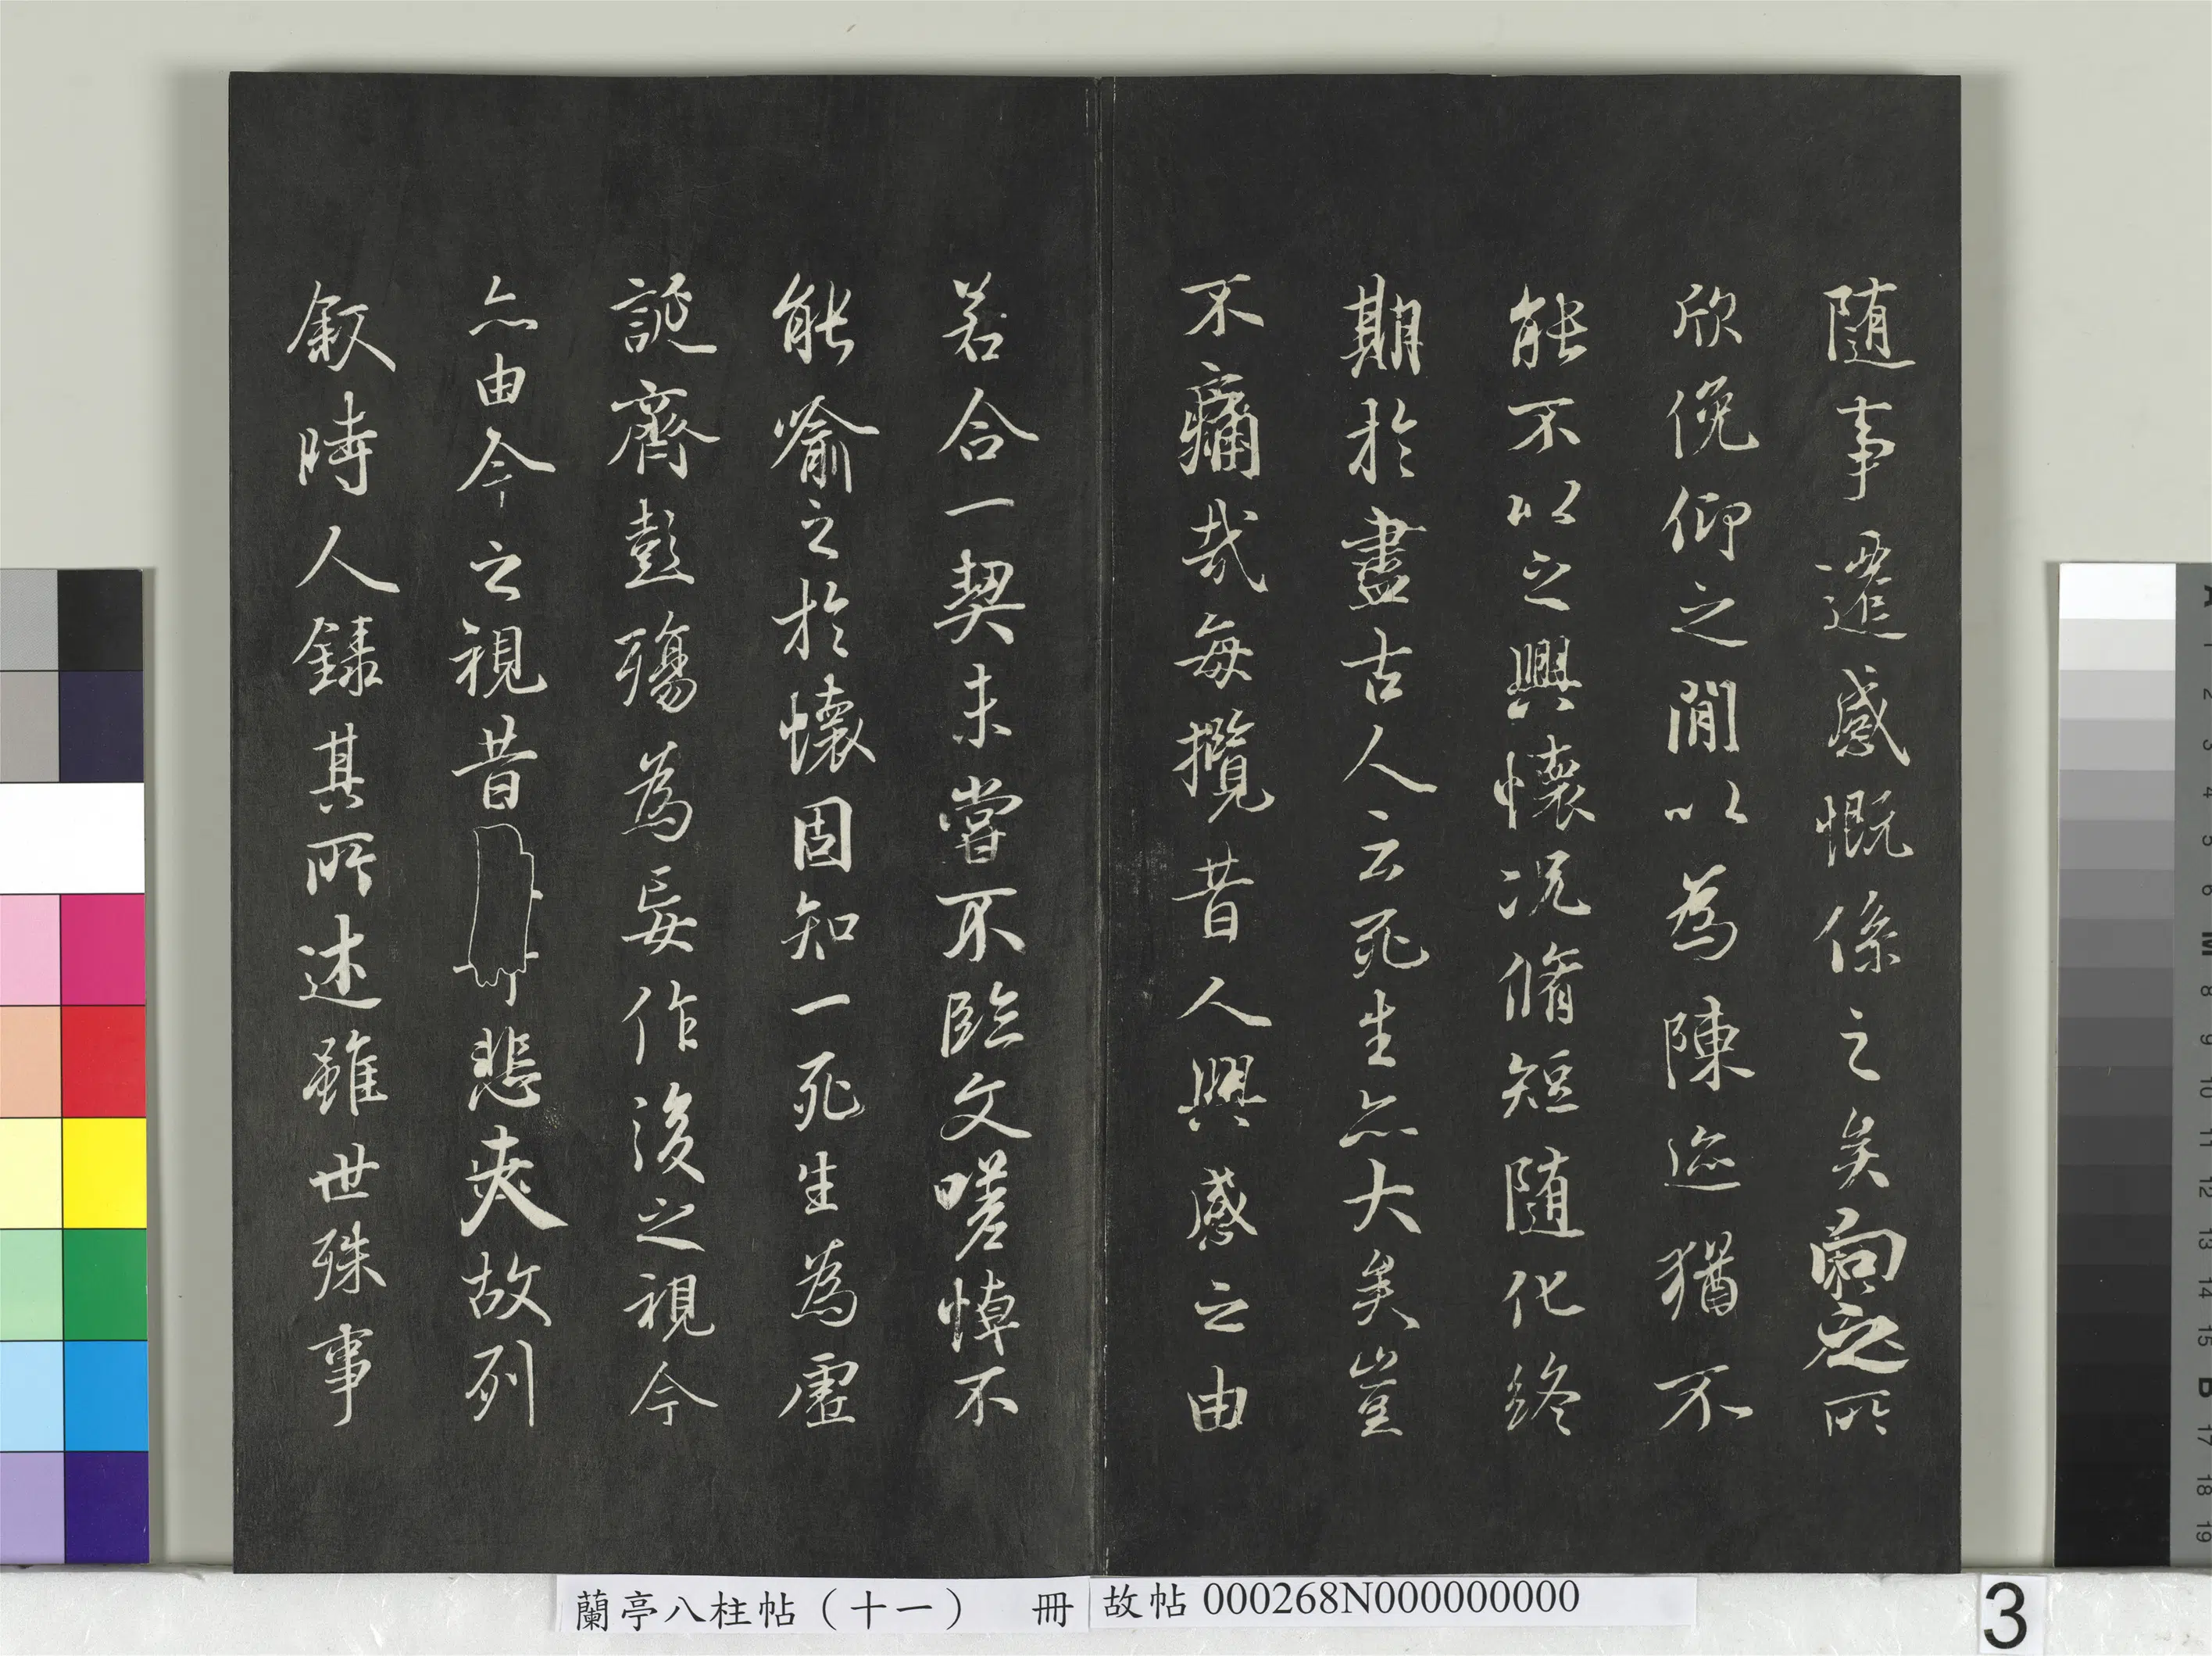 随事遷感慨係之矣向之所
欣俛仰之閒以為陳迹猶不
能不以之興懷況脩短随化終
期於盡古人云死生亦大矣豈
不痛哉每攬昔人興感之由
若合一契未嘗不臨文嗟悼不
能喻之於懷固知一死生為虛
誕齊彭殤為妄作後之視今
亦由今之視昔悲夫故列
敘時人錄其所述雖世殊事
蘭亭八柱帖（十一） 冊
故帖 000268N000000000
3